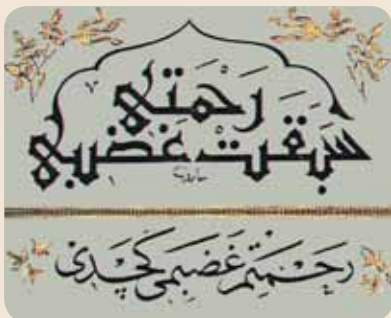 رَحْمَتِي
سَبَقَتْ غَضَبِي
رَحْمَتِمْ غَضَبِمِی كَچَدِی